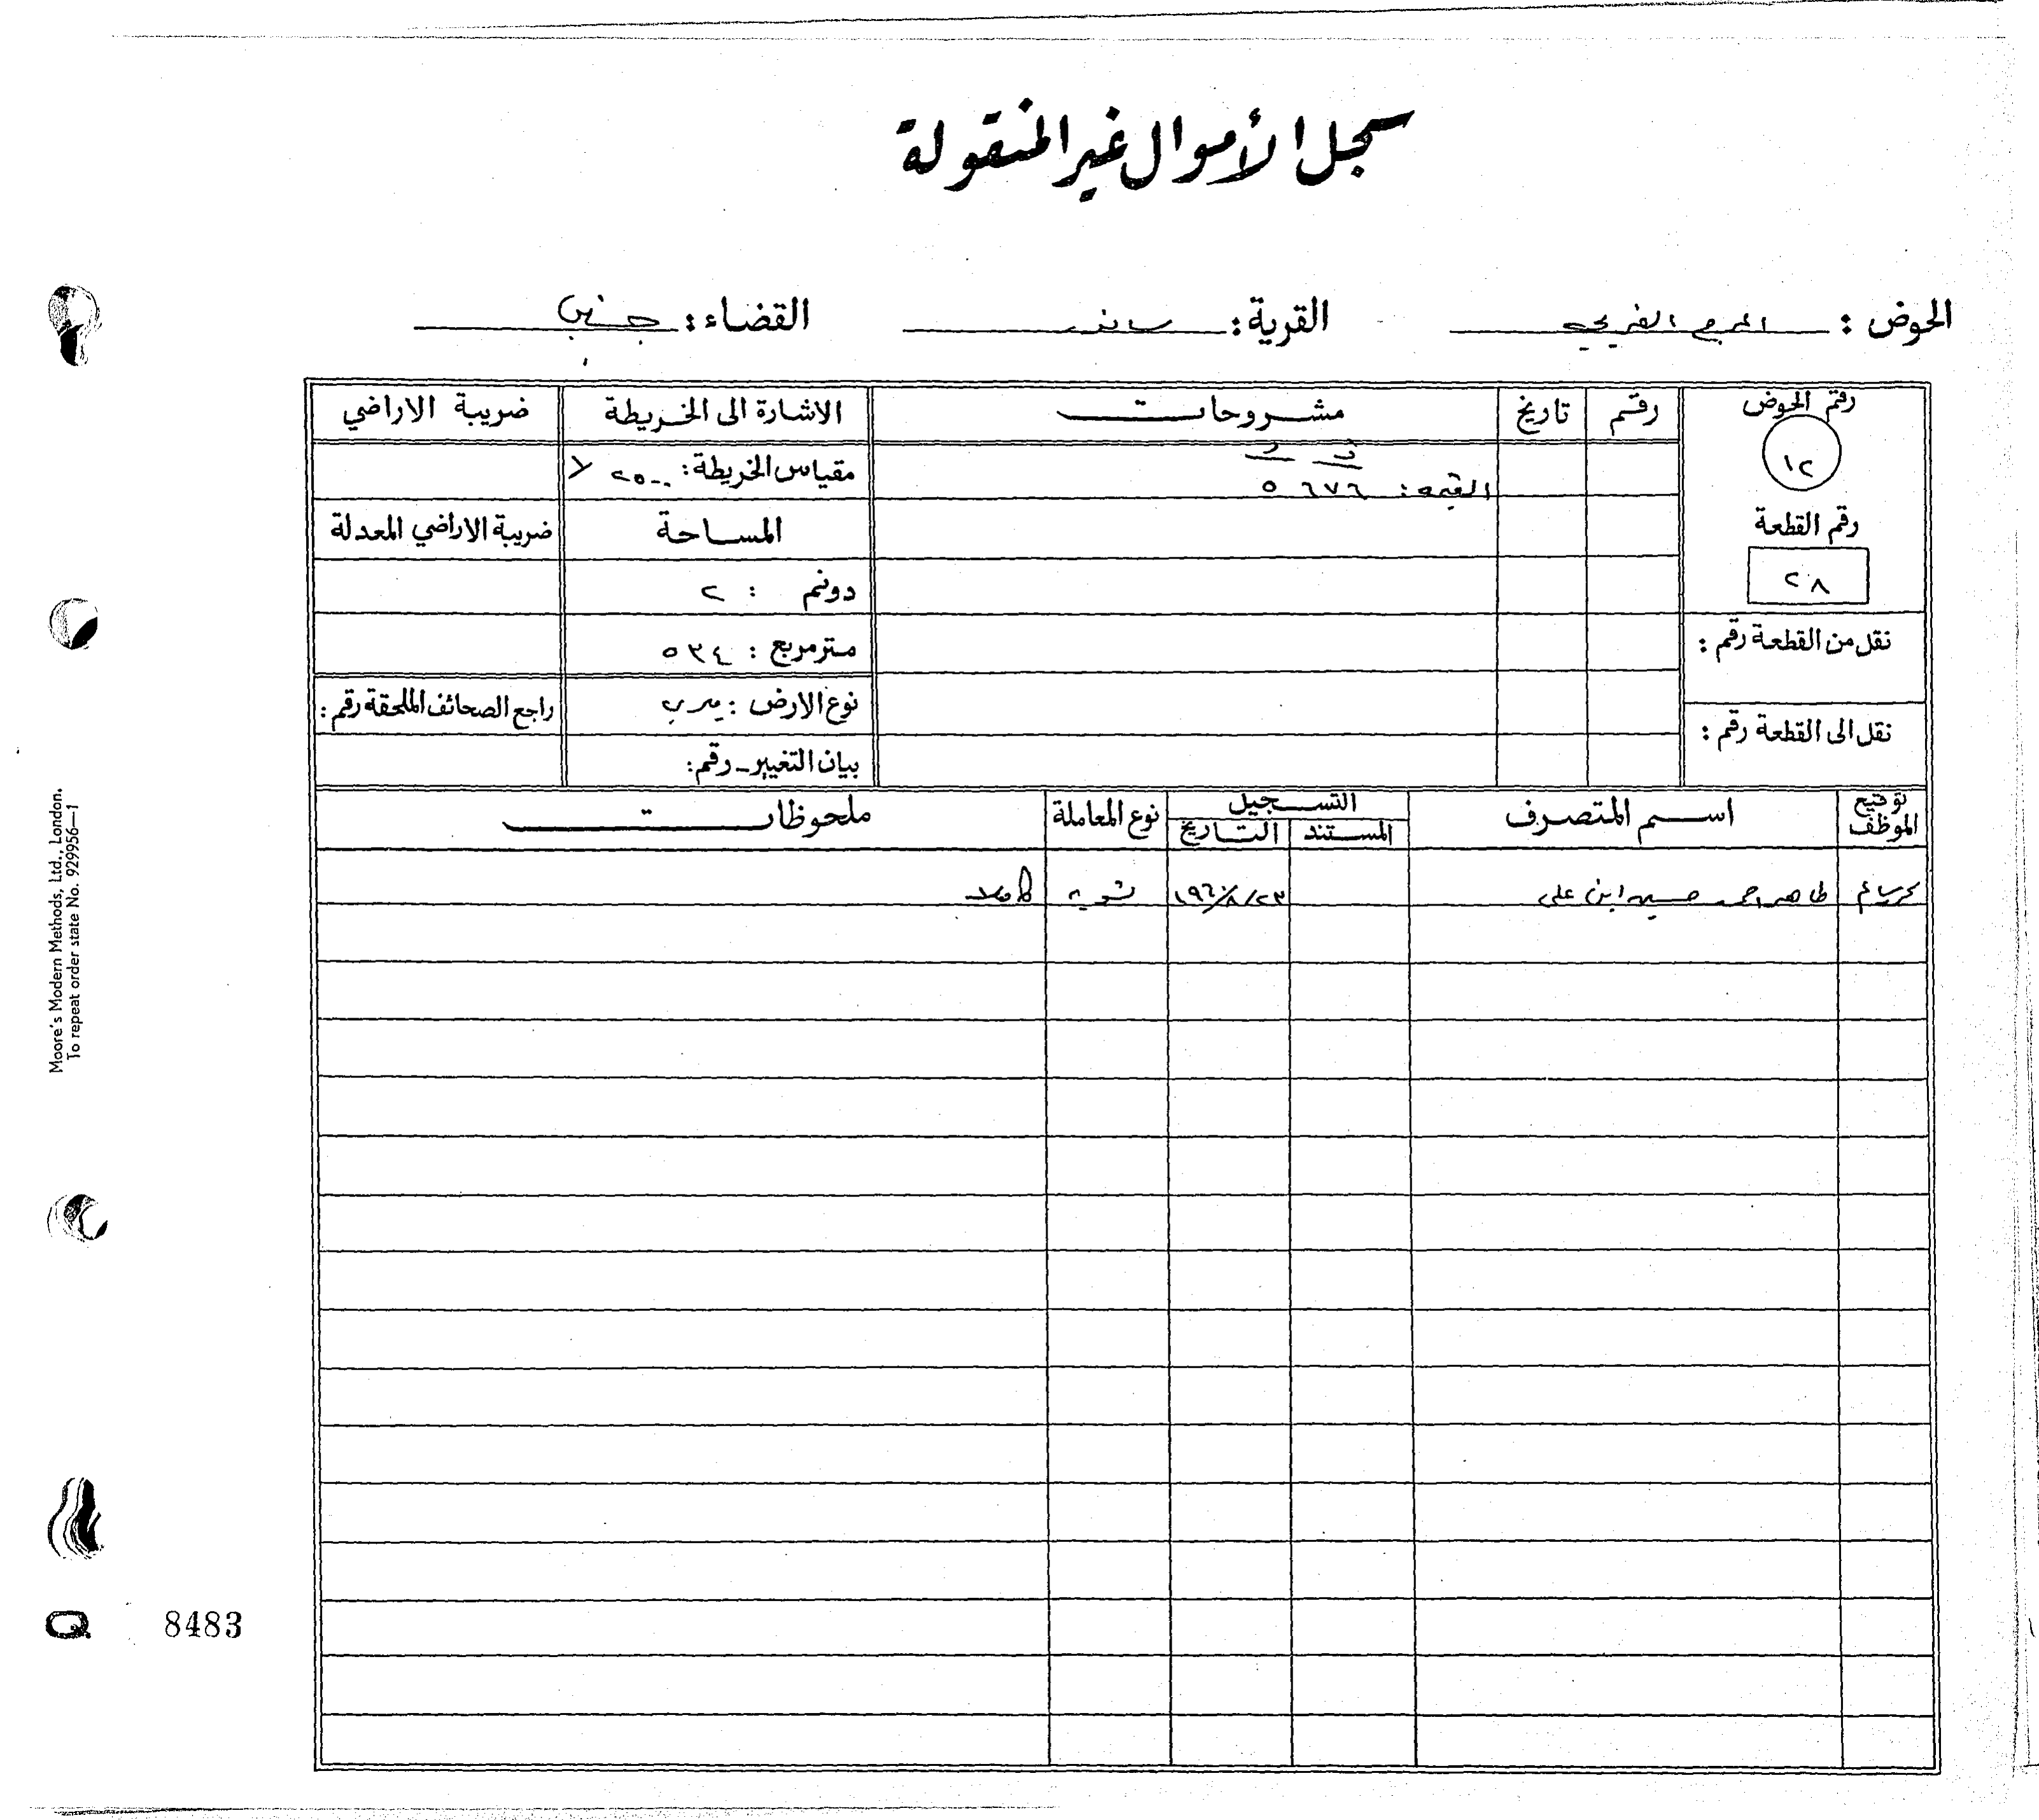 سجل الأموال غير المنقولة
الحوض : المرج الغربي القرية : صانور القضاء : جنين
رقم الحوض رقم تاريخ مشروحات الاشارة الى الخريطة ضريبة الاراضي
١٢ القيمة : ٥ ٦٧٦ مقياس الخريطة : ٢٥٠٠
رقم القطعة المساحة ضريبة الاراضي المعدلة
٢٨ دونم : ٢
نقل من القطعة رقم : متر مربع : ٥٣٤
نوع الارض : ميري راجع الصحائف الملحقة رقم :
نقل الى القطعة رقم : بيان التغيير - رقم :
توقيع الموظف اسم المتصرف التسجيل نوع المعاملة ملحوظات
المستند التاريخ
طاهر احمد حسين ابن علي ١٩٦٠/٨/٢٣ تسوية كاملا
Moore's Modern Methods, Ltd., London.
To repeat order state No. 929956—1
Q 8483